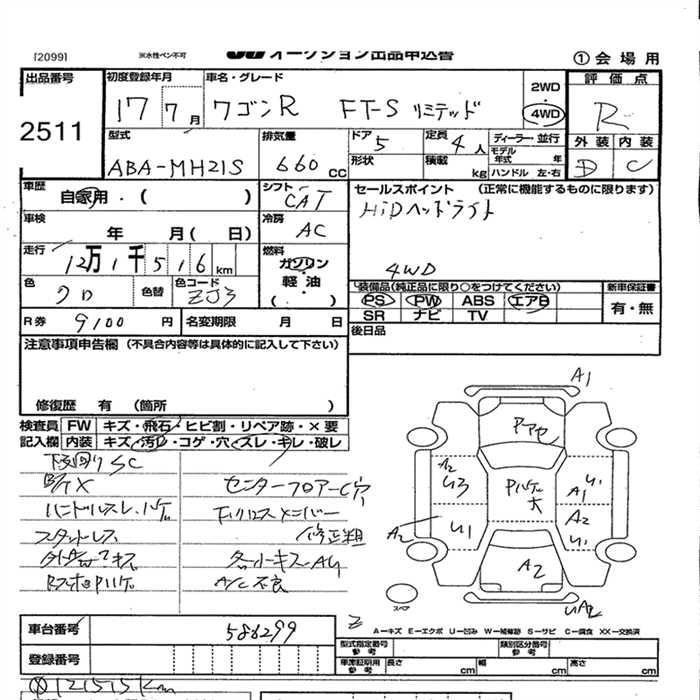 [2099]
※水性ペン不可
オークション出品申込書
①会場用
出品番号
2511
初度登録年月
17 7月
車名・グレード
ワゴンR FT-S リミテッド
2WD
4WD
評価点
R
外装 内装
D C
型式
ABA-MH21S
排気量
660 CC
ドア 5
形状
定員 4人
積載 kg
ディーラー・並行
モデル年式 年
ハンドル 左・右
車歴
自家用・( )
車検
年 月( 日)
走行
12万1千516km
色
クロ
色替
色コード
ZJ3
シフト
CAT
冷房
AC
燃料
ガソリン
軽油
( )
セールスポイント (正常に機能するものに限ります)
HiDヘッドライト
4WD
装備品(純正品に限り○をつけてください)
PS PW ABS エアB
SR ナビ TV
新車保証書
有・無
後日品
R券 9100円
名変期限 月 日
注意事項申告欄 (不具合内容等は具体的に記入して下さい)
修復歴 有 (箇所 )
検査員記入欄
FW キズ・飛石・ヒビ割・リペア跡・×要
内装 キズ・汚レ・コゲ・穴・スレ・キレ・破レ
下回りSC
ハンドルスレ
スタットレス
センターフロアーC穴
修正粗
A/C不良
A1
A2
U3
U1
A2
U1
A1
A2
U1
A2
UA2
大
スペア
A-キズ E-エクボ U-凹み W-補修跡 S-サビ C-腐食 XX-交換済
車台番号
586299
登録番号
型式指定番号 参考
類別区分番号 参考
車庫証明用 参考
長さ cm
幅 cm
高さ cm
121515km